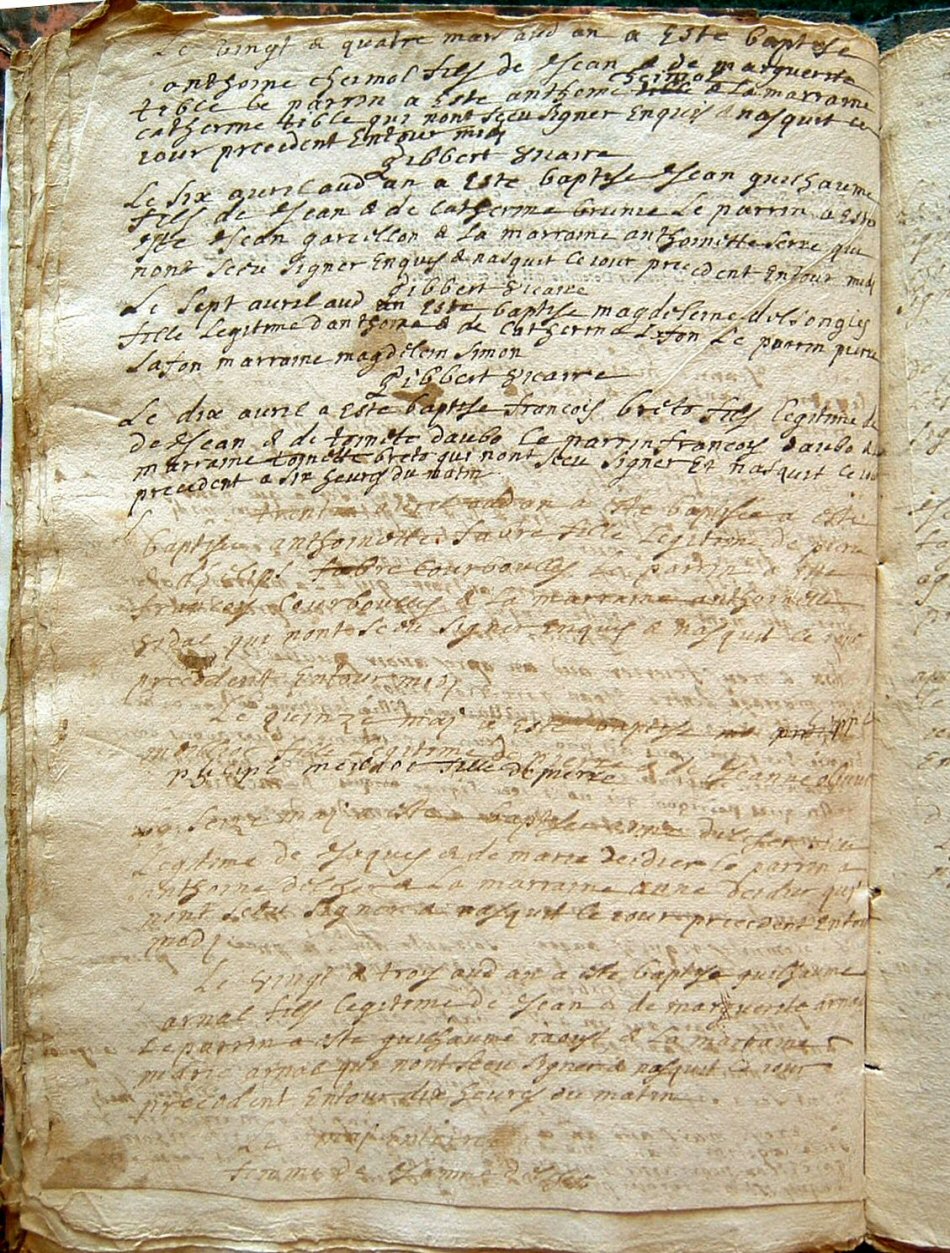 Le vingt & quatre mars aud an a este baptise
anthoine chermol fils de Jean & de marguerite
tible le parrin a este anthoine chermol & la marraine
catherine tible qui nont sceu signer Enquis & nasquit le
iour precedent Entour midj
Gibbert vicaire
Le six auril aud an a este baptise Jean guilhaume
fils de Jean & de Catherine brunie Le parrin a este
este Jean garcellon & La marraine anthoinette serre qui
nont sceu signer Enquis & nasquit le iour precedent Entour midj
Gibbert vicaire
Le sept auril aud an este baptise magdeleine delsongles
fille Legitime danthoine & de Catherine Lafon Le parrin pierre
Lafon marraine magdelein simon
Gibbert vicaire
Le dix auril a este baptise francois breto fils legitime de
de Jean & de tomete daubo Le parrin francois daubo &
marraine tomette breto qui nont sceu signer Et nasquit le iour
precedent a six heures du matin
aud an a este baptisee a este
baptise anthoinette faure fille Legitime de pierre
& fabre Courboulles Le parrin a este
francois Courboulles & La marraine anthoinette
vidal qui nont sceu signer Enquis & nasquit le iour
precedent Entour midj
Le quinze maj a este baptise
fille Legitime de pierre & de Jeanne
fille de pierre
seize maj a este baptise
Legitime de Jaques & de marie deidier Le parrin a
anthoine & La marraine anne deidier qui
nont sceu signer & nasquit le iour precedent Entour
midj
Le vingt & trois aud an a este baptise guilhaume
arnal fils legitime de Jean & de marguerite arnal
Le parrin a este guilhaume raoust & La marraine
marie arnal qui nont sceu signer & nasquit le iour
precedent Entour dix heures du matin
Le